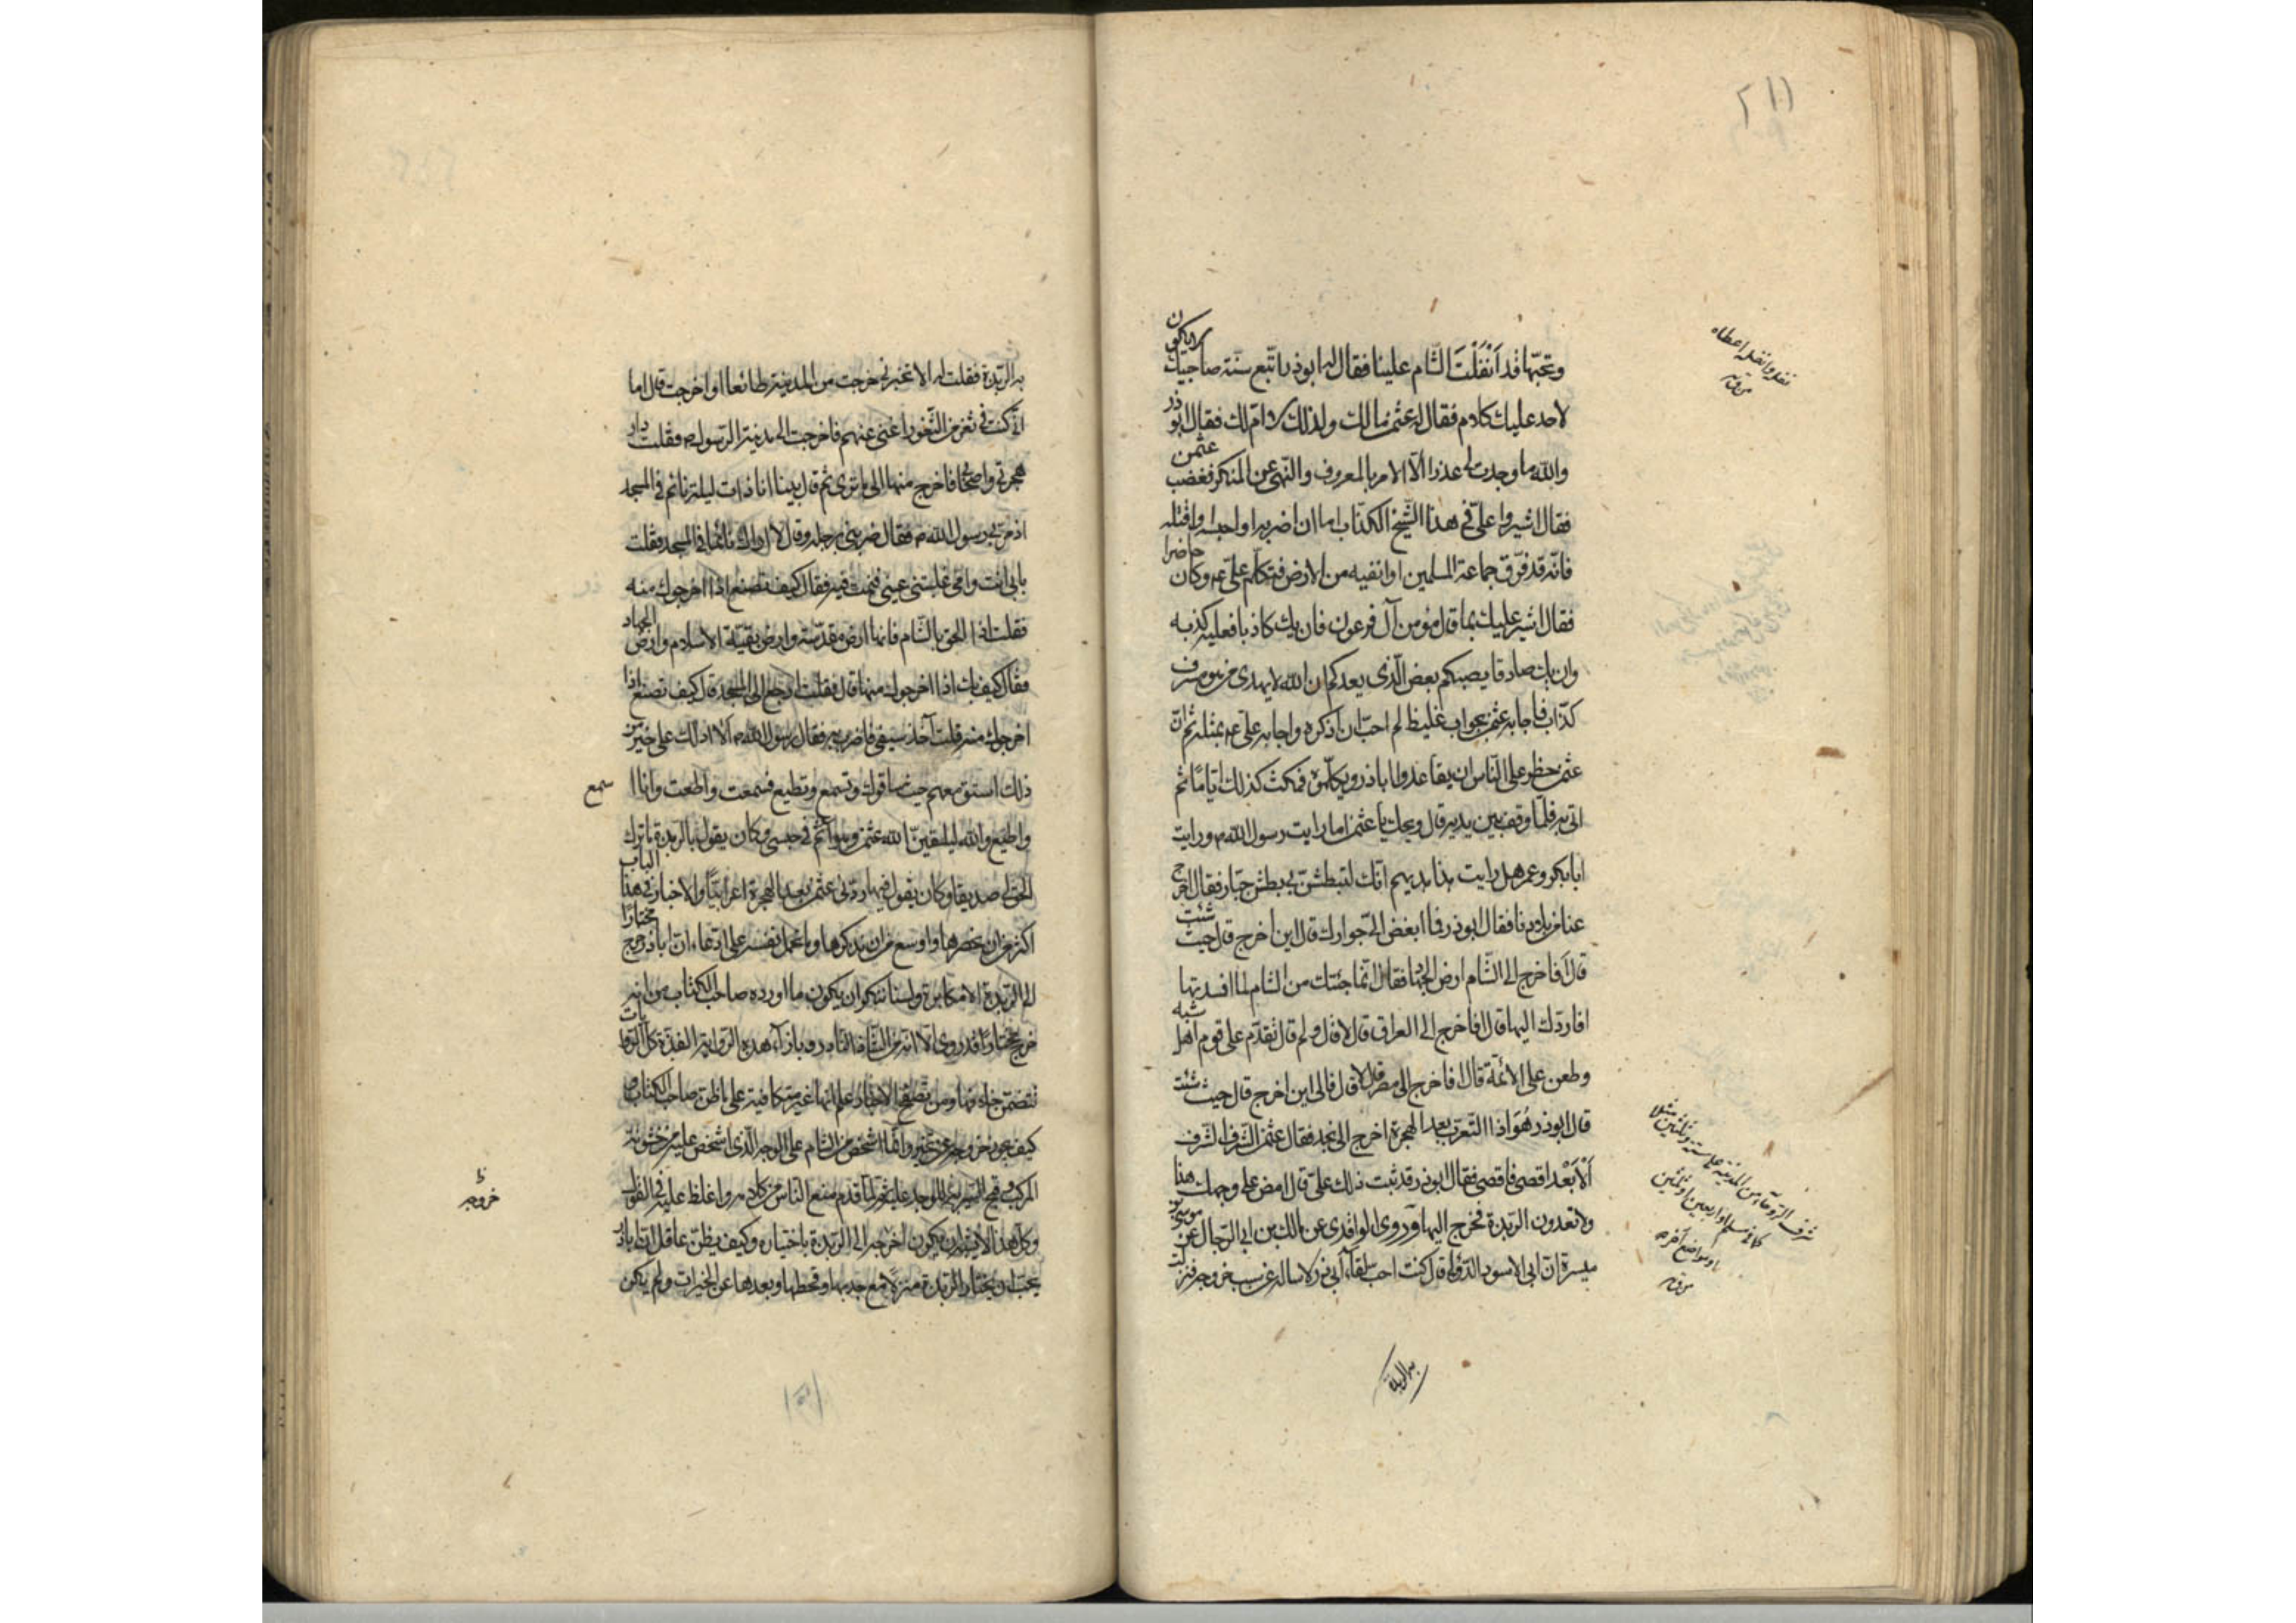 ٢١١
وتحبّها قد اَنْفَلْتَ الشّام علينا فقال له ابوذر اتّبع سنّة صاحبيك لا يكون
لاحد عليك كلام فقال له عثمن مالك ولذلك لا امّ لك فقال ابوذر
والله ما وجدت لى عذرا الّا الامر بالمعروف والنّهى عن المنكر فغضب عثمن
فقال اشيروا علىّ فى هذا الشّيخ الكذّاب اما ان اضربه او احبسه او اقتله
فانّه قد فرّق جماعة المسلمين او انفيه من الارض فتكلّم علىّ ع وكان حاضرا
فقال اشير عليك بما قال مؤمن آل فرعون فان يك كاذبا فعليه كذبه
وان يك صادقا يصبكم بعض الّذى يعدكم ان الله لا يهدى من هو مسرف
كذّاب فاجابه عثمن بجواب غليظ لم احبّ ان اذكره واجابه علىّ ع بمثله ثم انّ
عثمن حظر على النّاس ان يقاعدوا اباذر ويكلّموه فمكث كذلك ايّاما ثم
اتى به فلمّا وقف بين يديه قال ويحك يا عثمن اما رايت رسول الله ص ورايت
ابابكر وعمر هل رايت هذا هديهم انّك لتبطش بى بطش جبّار فقال اخرج
عنا من بلادنا فقال ابوذر فما ابغض الىّ جوارك قال اين اخرج قال حيث شئت
قال افاخرج الى الشّام ارض الجهاد فقال انّما جئتك من الشام لما افسدتها
افاردّك اليها قال افاخرج الى العراق قال لا قال ولم قال تقدم على قوم اهل شبه
وطعن على الأئمّة قال افاخرج الى مصر قال لا قال فالى اين اخرج قال حيث شئت
قال ابوذر هُوَ اذا التّعرّب بعد الهجرة اخرج الى نجد فقال عثمن الشّرف الشّرف
اَلْاَبْعَد اقصى فاقصى فقال ابوذر قد ثبت ذلك علىّ قال امض على وجهك هذا
ولا تعدون الربذة فخرج اليها وروى الواقدى عن مالك بن ابى الرّجال عن موسى بن
ميسرة ان ابى الاسود الدّؤلى قال كنت احب لقاء ابى ذر لاساله عن سبب خروجه فنزلت
به الربذة
به الرّبذة فقلت له الا تخبرنى خرجت من المدينة طائعا او اخرجت قال اما
انّى كنت فى ثغر من الثّغور اغنى عنهم فاخرجت الى مدينة الرّسول ص فقلت دار
هجرتى واصحابى فاخرج منها الى ما ترى ثم قال بينا انا ذات ليلة نائم فى المسجد
اذ مرّ بى رسول الله ص فقال ضربنى برجله وقال لا اراك نائما فى المسجد فقلت
بابى انت وامى غلبتنى عينى فنمت فيه فقال كيف تصنع اذا اخرجوك منه
فقلت اذا الحق بالشّام فانها ارض مقدّسة وارض بقيّة الاسلام وارض الجهاد
فقال كيف بك اذا اخرجوك منها قال فقلت ارجع الى المسجد قال كيف تصنع اذا
اخرجوك منه قلت آخذ سيفى فاضرب به فقال رسول الله ص الا ادلّك على خير من
ذلك استق معهم حيث ساقوك وتسمع وتطيع فسمعت واطعت وانا ا
سمع
واطيع والله ليلقينّ الله عثمن وهو آثم فى جنبى وكان يقول بالربذة ما ترك
الحق لى صديقا وكان يقول فيها ردّنى عثمن بعد الهجرة اعرابيّا والاخبار فى هذا الباب
اكثر من ان نحصرها واوسع من ان نذكرها وما يحمل نفسه على ادّعاء ان اباذر خرج مختارا
الى الرّبذة الا مكابرة ولسنا ننكر ان يكون ما اورده صاحب الكتاب من انه
خرج مختارًا قد روى الّا انه من الشّاذ النّادر وبازاء هذه الرّواية الفذّة كل الروايات
تتضمّن خلافها ومن تصفّح الاخبار علم انها غير متكافية على ما ظن صاحب الكتاب و
كيف يجوز خروجه عن تخيير وانّما اشخص من الشام على الوجه الذى اشخص عليه من خشونة
المركب وقبح السير به للموجدة عليه ثم لمّا قدم منع النّاس من كلامه واغلظ عليه فى القول
خروجه
وكل هذا لا يشبه ان يكون اخرجه الى الرّبذة باختياره وكيف يظنّ عاقل ان اباذر
يحبّ ان يختار الرّبذة منزلًا مع جدبها وقحطها وبعدها عن الخيرات ولم يكن